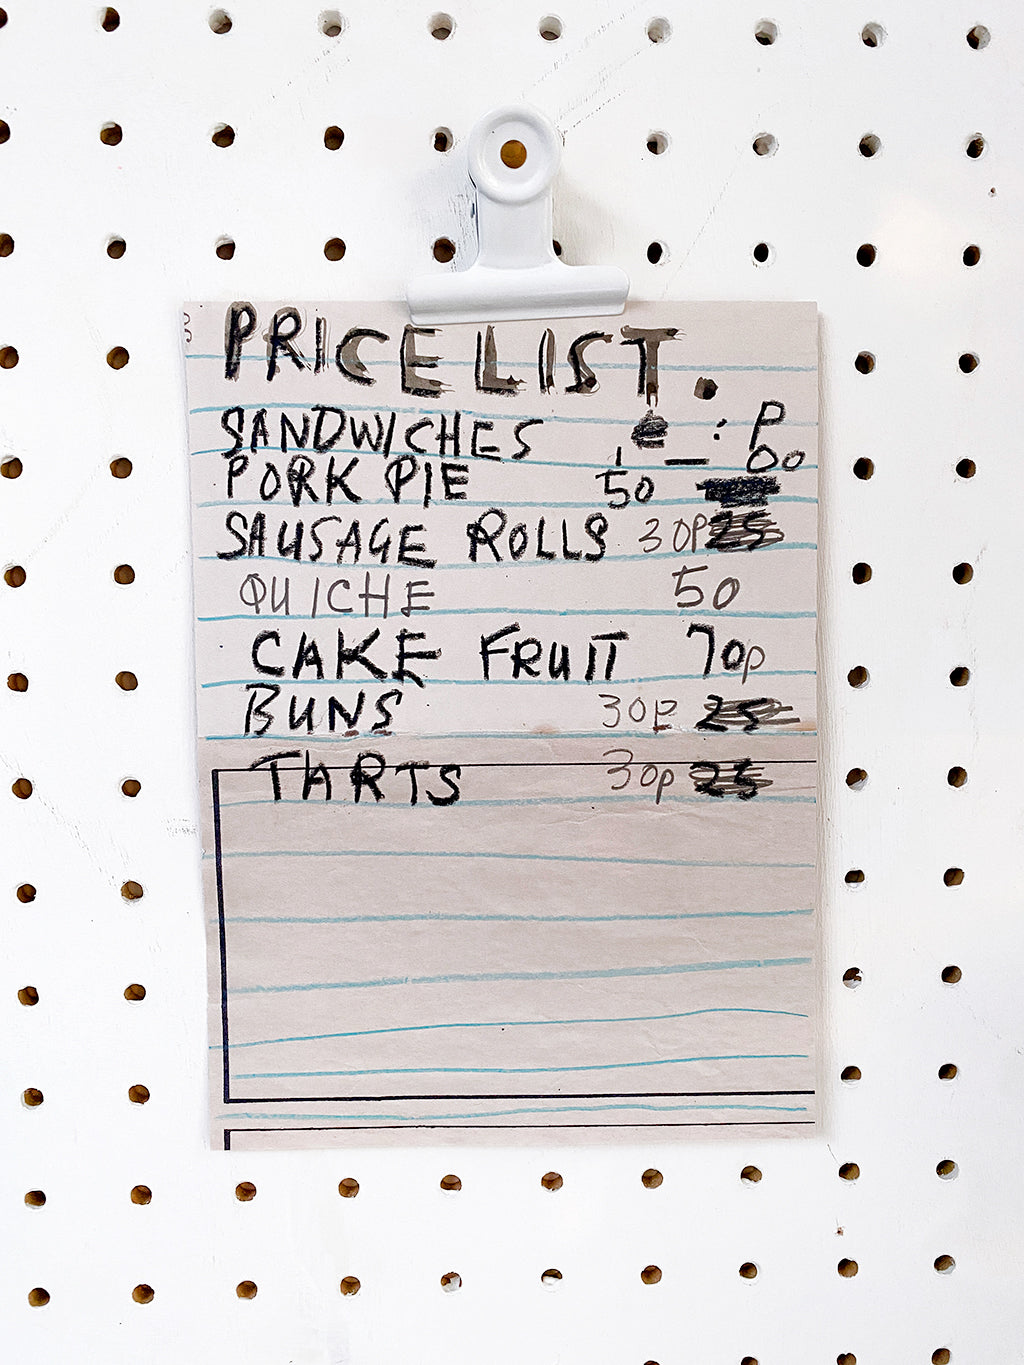 PRICE LIST.
SANDWICHES £ : P
1 — 00
PORK PIE 50
SAUSAGE ROLLS 30P 25
QUICHE 50
CAKE FRUIT 70p
BUNS 30p 25
TARTS 30p 25